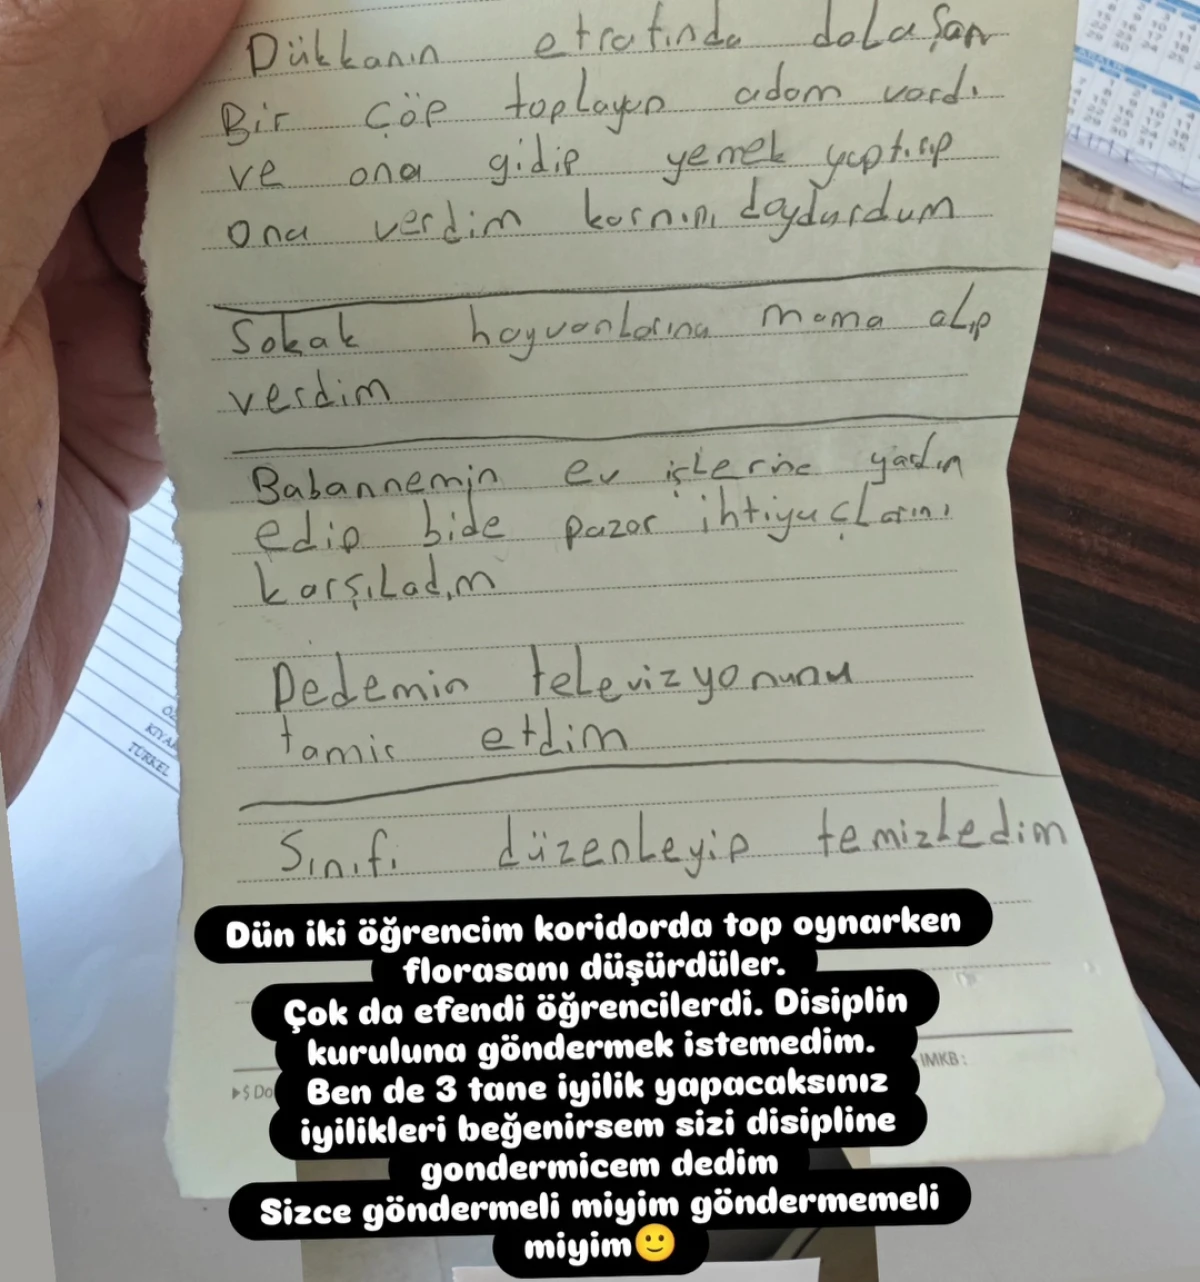 Dükkanın etrafında dolaşan
Bir çöp toplayan adam vardı
ve ona gidip yemek yaptırıp
ona verdim karnını doydurdum
Sokak hayvanlarına mama alıp
verdim
Babannemin ev işlerine yardım
edip bide pazar ihtiyaçlarını
karşıladım
Dedemin televizyonunu
tamir etdim
Sınıfı düzenleyip temizledim
Dün iki öğrencim koridorda top oynarken
florasanı düşürdüler.
Çok da efendi öğrencilerdi. Disiplin
kuruluna göndermek istemedim.
Ben de 3 tane iyilik yapacaksınız
iyilikleri beğenirsem sizi disipline
gondermicem dedim
Sizce göndermeli miyim göndermemeli
miyim🙂
IMKB:
▸$ Do
KIYA
TÜRKEL
ARALIK